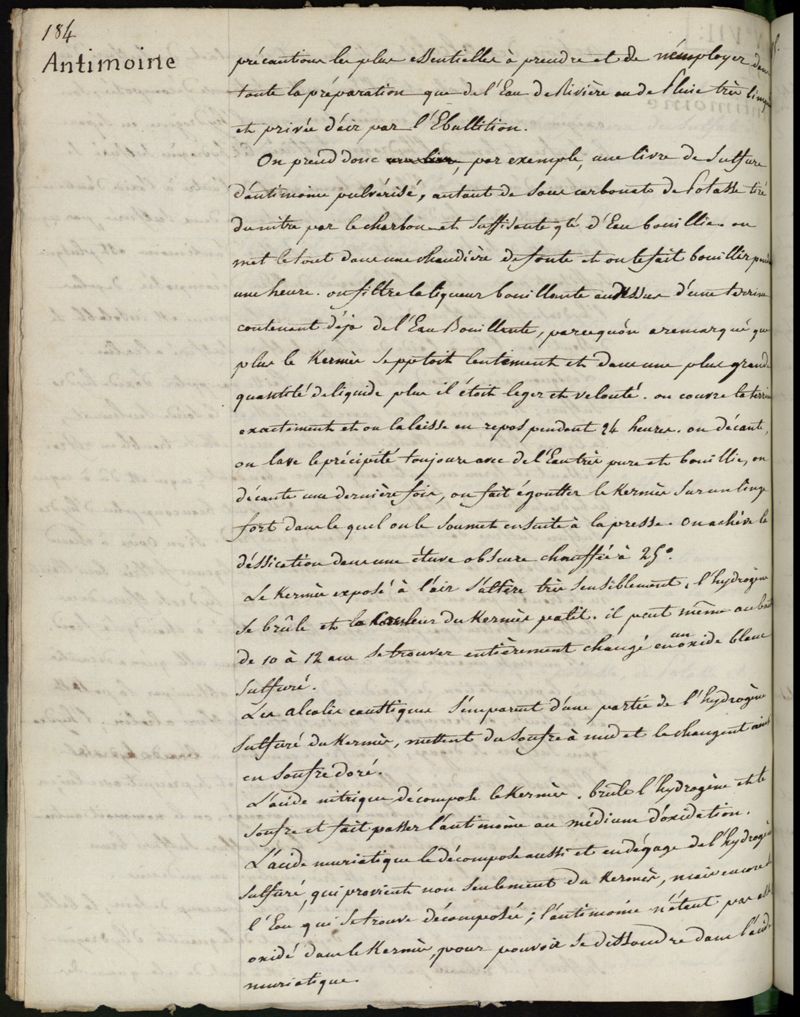 184
Antimoine
précautions les plus essentielles à prendre est de n'employer dans
toute la préparation que de l'Eau de Rivière ou de Pluie très limp
et privée d'air par l'Ebullition.
On prend donc, par exemple, une livre de Sulfure
d'antimoine pulvérisé, autant de sous carbonate de Potasse tiré
du nitre par le charbon et suffisante qté d'Eau bouillie. on
met le tout dans une chaudière de fonte et on le fait bouillir pend
une heure. on filtre la liqueur bouillante au dessus d'une terrine
contenant déja de l'Eau Bouillante, parcequ'on a remarqué que
plus le Kermès se pptoit lentement et dans une plus grande
quantité de liquide plus il étoit leger et velouté. on couvre la terrin
exactement et on la laisse en repos pendant 24 heures. on décante,
on lave le précipité toujours avec de l'Eau très pure et bouillie, on
décante une dernière fois, on fait égoutter le Kermès sur un linge
fort dans le quel on le soumet ensuite à la presse. On achève la
déssication dans une étuve obscure chauffée à 25°.
Le Kermès exposé à l'air s'altère très sensiblement. l'hydrogène
se brûle et la couleur du Kermès palit. il peut même au bout
de 10 à 12 ans se trouver entièrement changé en un oxide blanc
sulfuré.
Les alcalis caustiques s'emparent d'une partie de l'hydrogène
sulfuré du Kermès, mettent du soufre à nud et le changent ainsi
en soufre doré.
L'acide nitrique décompose le Kermès. brûle l'hydrogène et le
soufre et fait passer l'antimoine au médium d'oxidation.
L'acide muriatique le décompose aussi et en dégage de l'hydrogè
sulfuré, qui provient non seulement du Kermès, mais encore d
l'Eau qui se trouve décomposée; l'antimoine n'étant pas
oxidé dans le Kermès, pour pouvoir se dissoudre dans l'acide
muriatique.